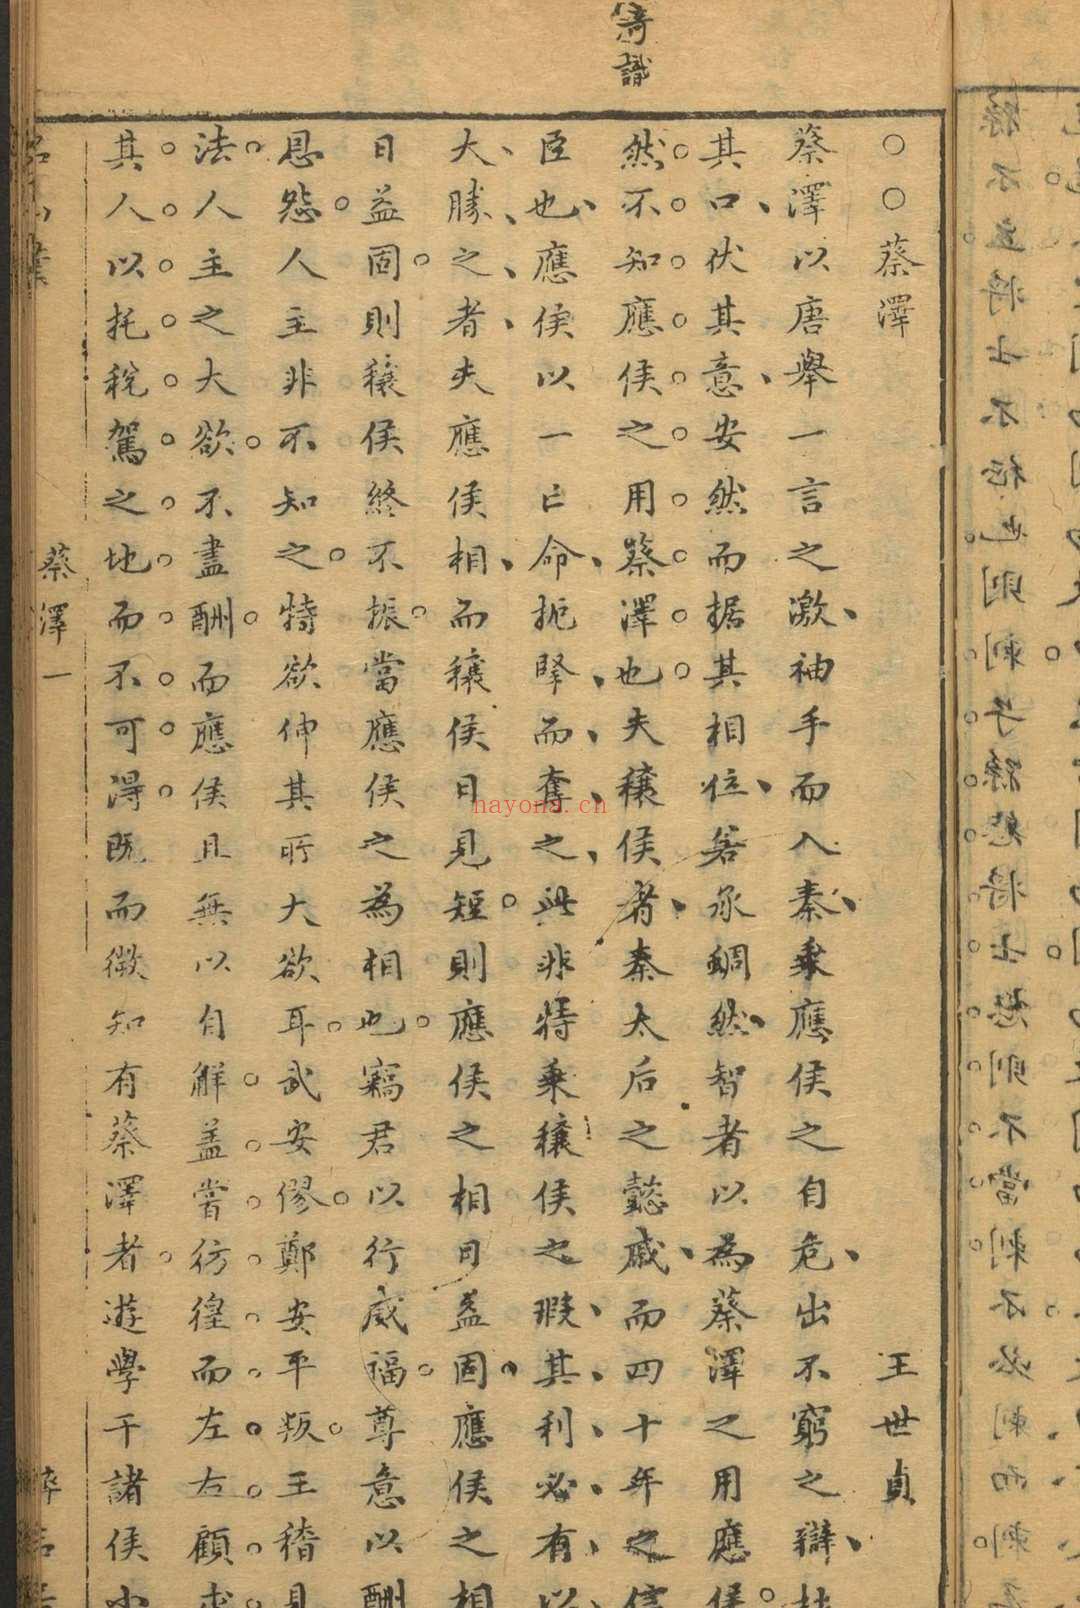 奇識
○○蔡澤　王世貞
蔡澤以唐舉一言之激袖手而入秦乗應侯之自危出不窮之辯杜
其口伏其意安然而据其相位若承蜩然智者以為蔡澤之用應侯
然不知應侯之用蔡澤也夫穰侯者秦太后之懿戚而四十年之信
臣也應侯以一亡命扼㫁而奪之此非特乗穰侯之瑕其利必有以
大勝之者夫應侯相而穰侯日見短則應侯之相日益固應侯之相
日益固則穰侯終不振當應侯之為相也竊君以行威福尊意以酬
恩怨人主非不知之特欲伸其所大欲耳武安僇鄭安平叛王稽見
法人主之大欲不盡酬而應侯且無以自解盖嘗彷徨而左右顧求
其人以托稅駕之地而不可得既而微知有蔡澤者遊學干諸侯小
蔡澤一
nayona.cn